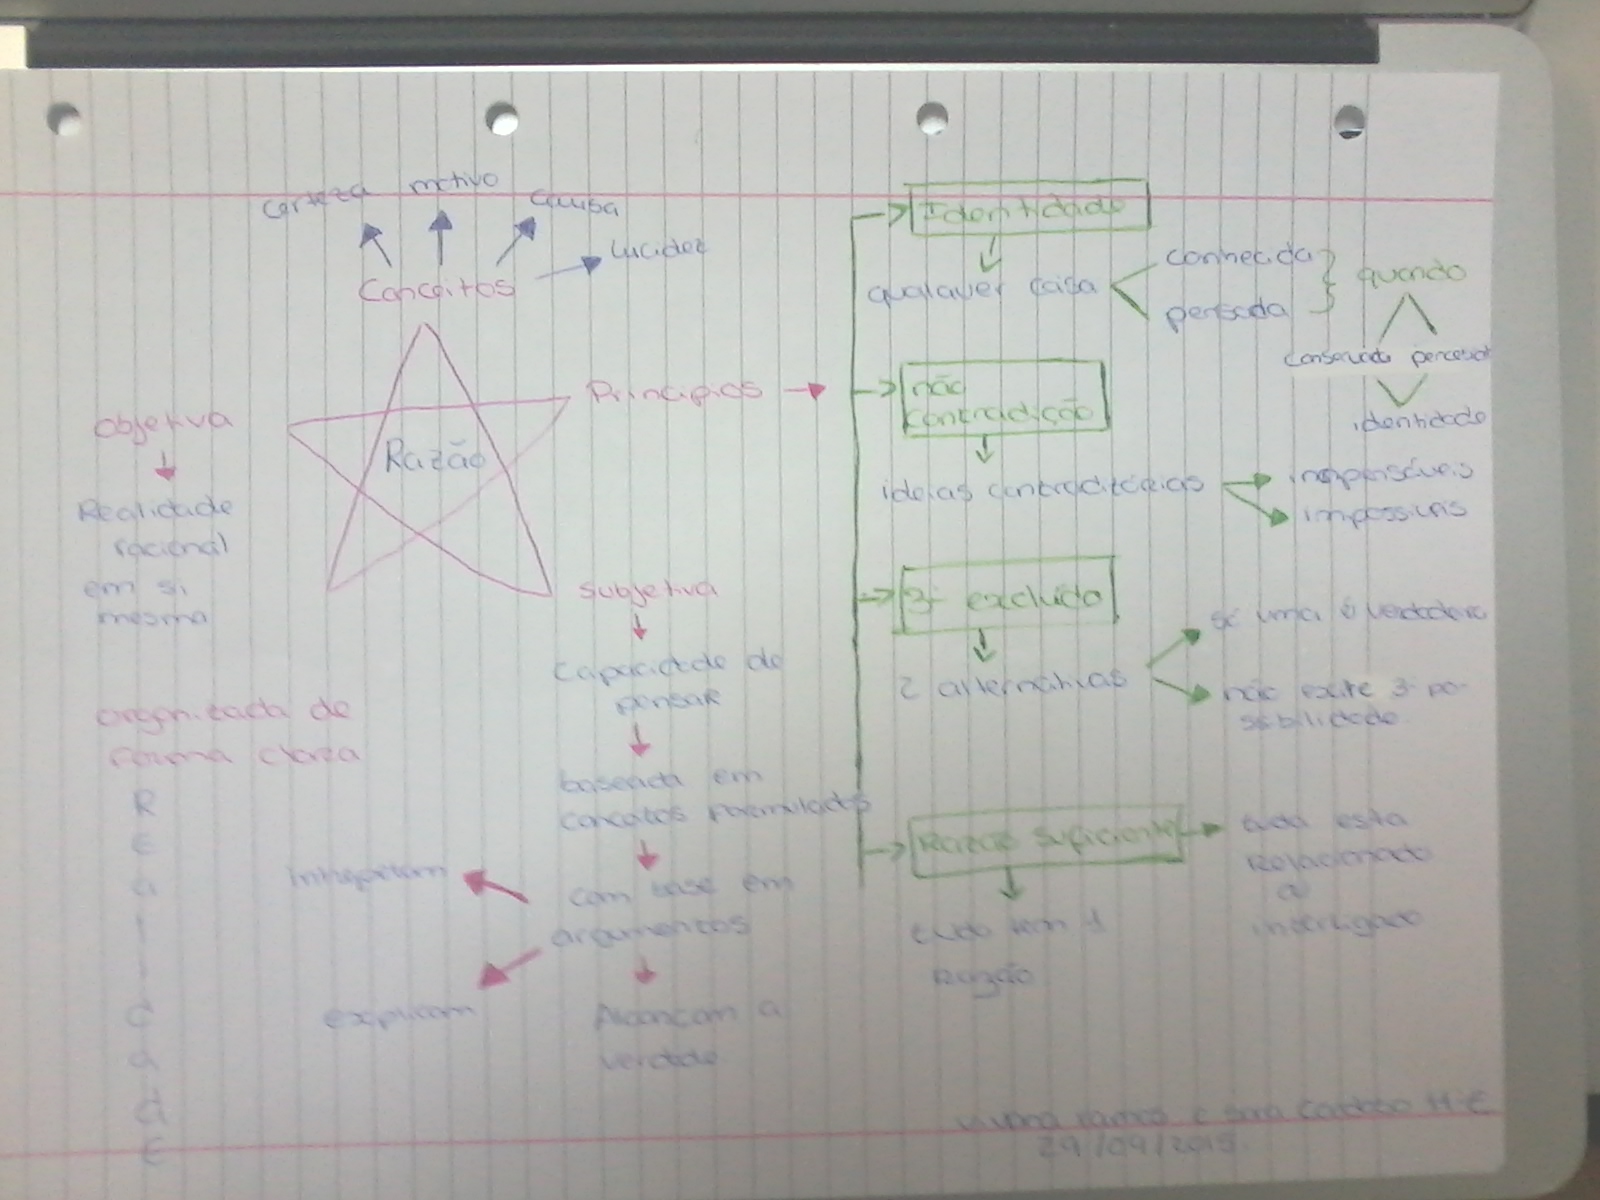 certeza
motivo
causa
Lucidez
Conceitos
Razão
Objetiva
Realidade
racional
em si
mesma
organizada de
forma clara
R
E
a
l
i
d
a
d
E
Princípios
Subjetiva
Capacidade de
pensar
baseada em
conceitos formulados
com base em
argumentos
interpretam
explicam
Alcançam a
verdade
Identidade
qualquer coisa
conhecida
pensada
quando
conservada
identidade
não
contradição
ideias contraditórias
impossiveis
3º excluído
2 alternativas
só uma é verdadeira
não exite 3ª po-
ssibilidade
Razão Suficiente
tudo esta
Relacionado
a
interligado
tudo tem 1
Razão
e Sara Cardoso H-E
29/09/2015